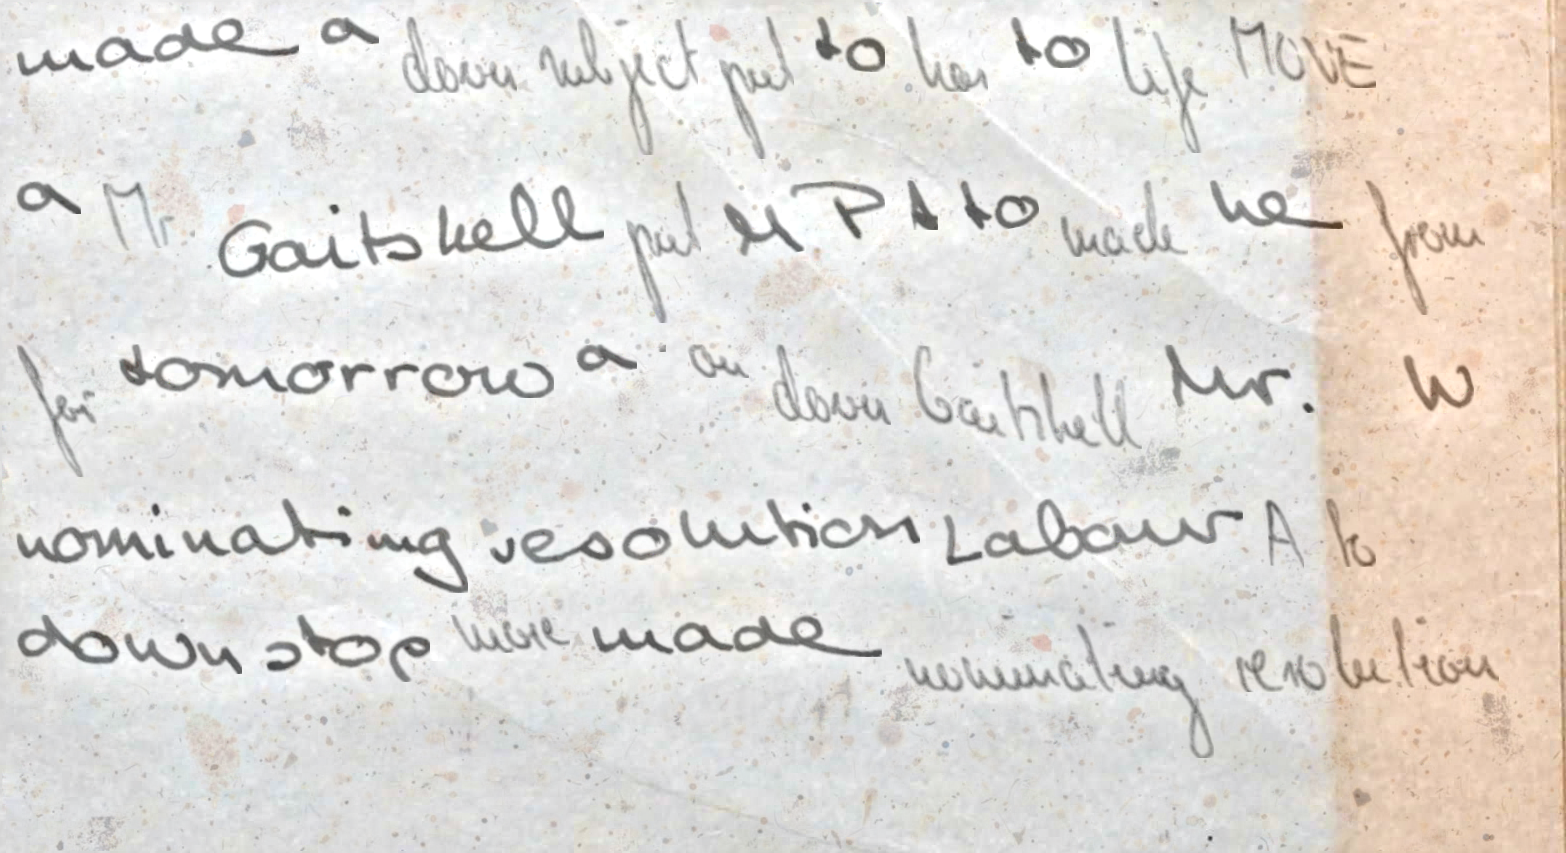 made a down subject put to has to life MOVE
a Mr Gaitskell put M P t to made he from
for tomorrow a on down Gaitskell Mr. W
nominating resolution Labour A to
down stop more made nominating resolution